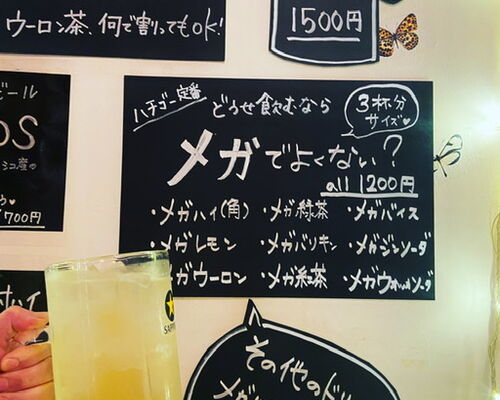 ウーロン茶、何で割ってもOK!
1500円
ビール
OS
シコ産♡
700円
ハチゴー定番
どうせ飲むなら
3杯分
サイズ♡
メガでよくない?
all 1200円
・メガハイ(角) ・メガ緑茶 ・メガバイス
・メガレモン ・メガバリキン ・メガジンソーダ
メガウーロン ・メガ紅茶 ・メガウォッカソーダ
ハイ
SAPPO
その他のド
メガ